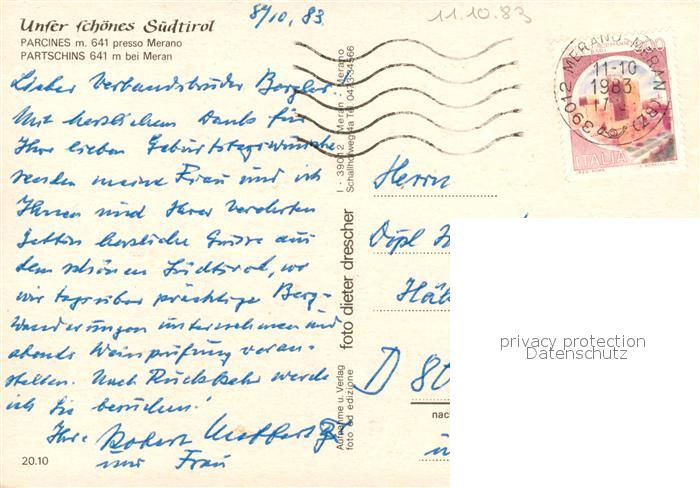 Unser schönes Südtirol
PARCINES m. 641 presso Merano
PARTSCHINS 641 m bei Meran
8/10, 83
11.10.83
Lieber Verbandsbruder
Mit herzlichem Dank für
Ihre lieben Geburtstagswünsche
senden meine Frau und ich
Ihnen und Ihrer verehrten
Gattin herzliche Grüsse aus
dem schönen Südtirol, wo
wir tagsüber prächtige Berg-
Wanderungen unternehmen und
abends Weinprüfung veran-
stalten. Nach Rückkehr werde
ich Sie besuchen!
Ihr Robert
und Frau
20.10
I - 39012 Meran - Merano
foto dieter drescher
Aufnahme u. Verlag
foto ed edizione
39012 MERANO-MERAN (BZ)
11-10
1983
ITALIA
Herrn
Dipl
D 80
nac
privacy protection
Datenschutz